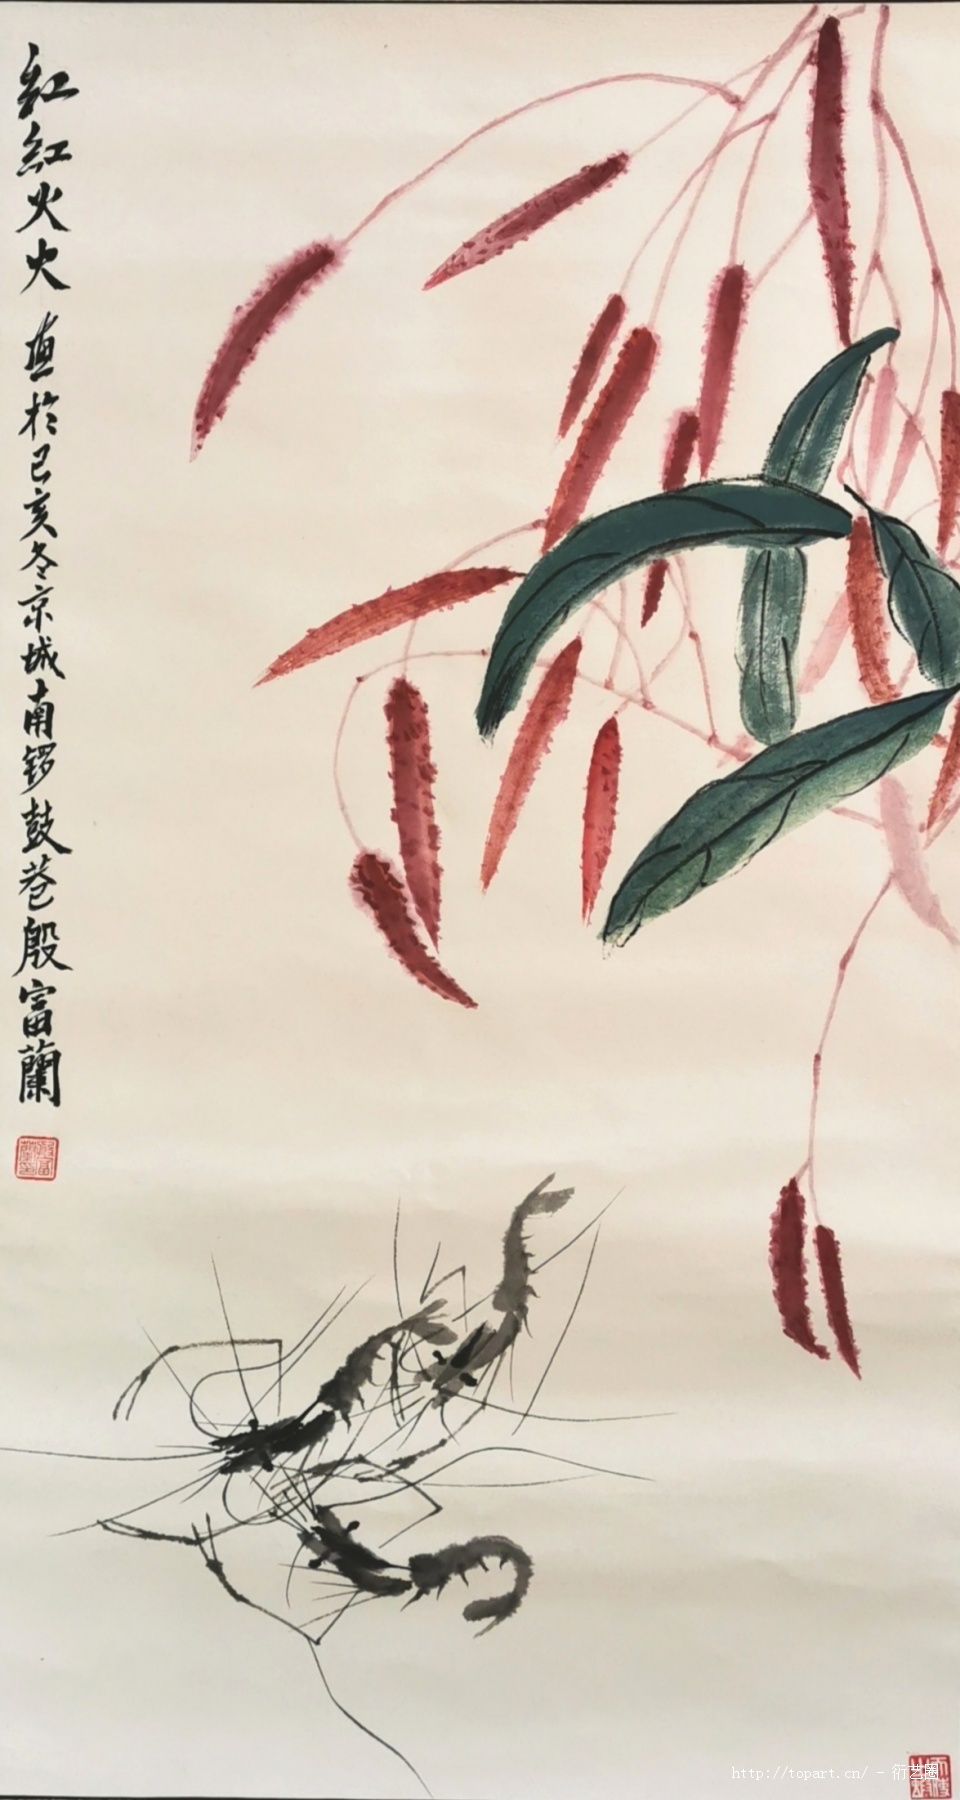 紅紅火火 画於己亥冬京城南锣鼓巷殷富蘭
http://topart.cn/ - 衍艺圈